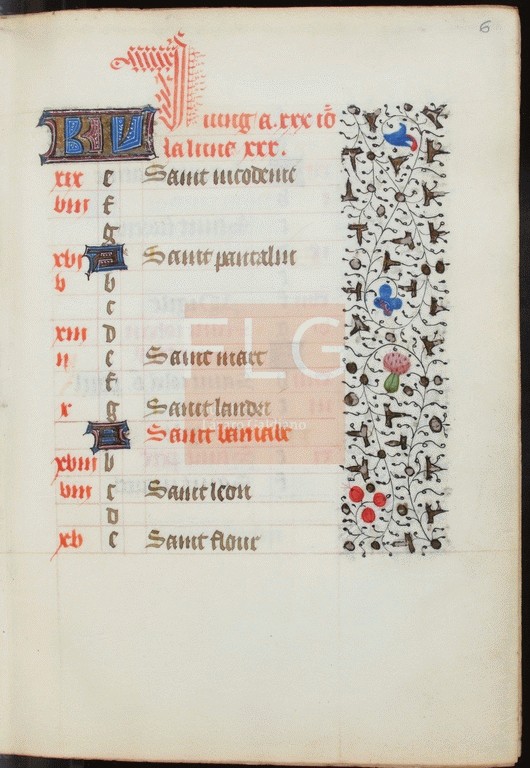 6
Juing a. xxx iō
KL la lune xxx.
xix e Saint nicodeme
viii f
g
xvi A Saint pantalin
v b
c
xiii d
ii e Saint marc
f
x g Saint landri
A Saint barnabe
xviii b
vii c Saint leon
d
xv e Saint flour
FLG
Lázaro Galdiano